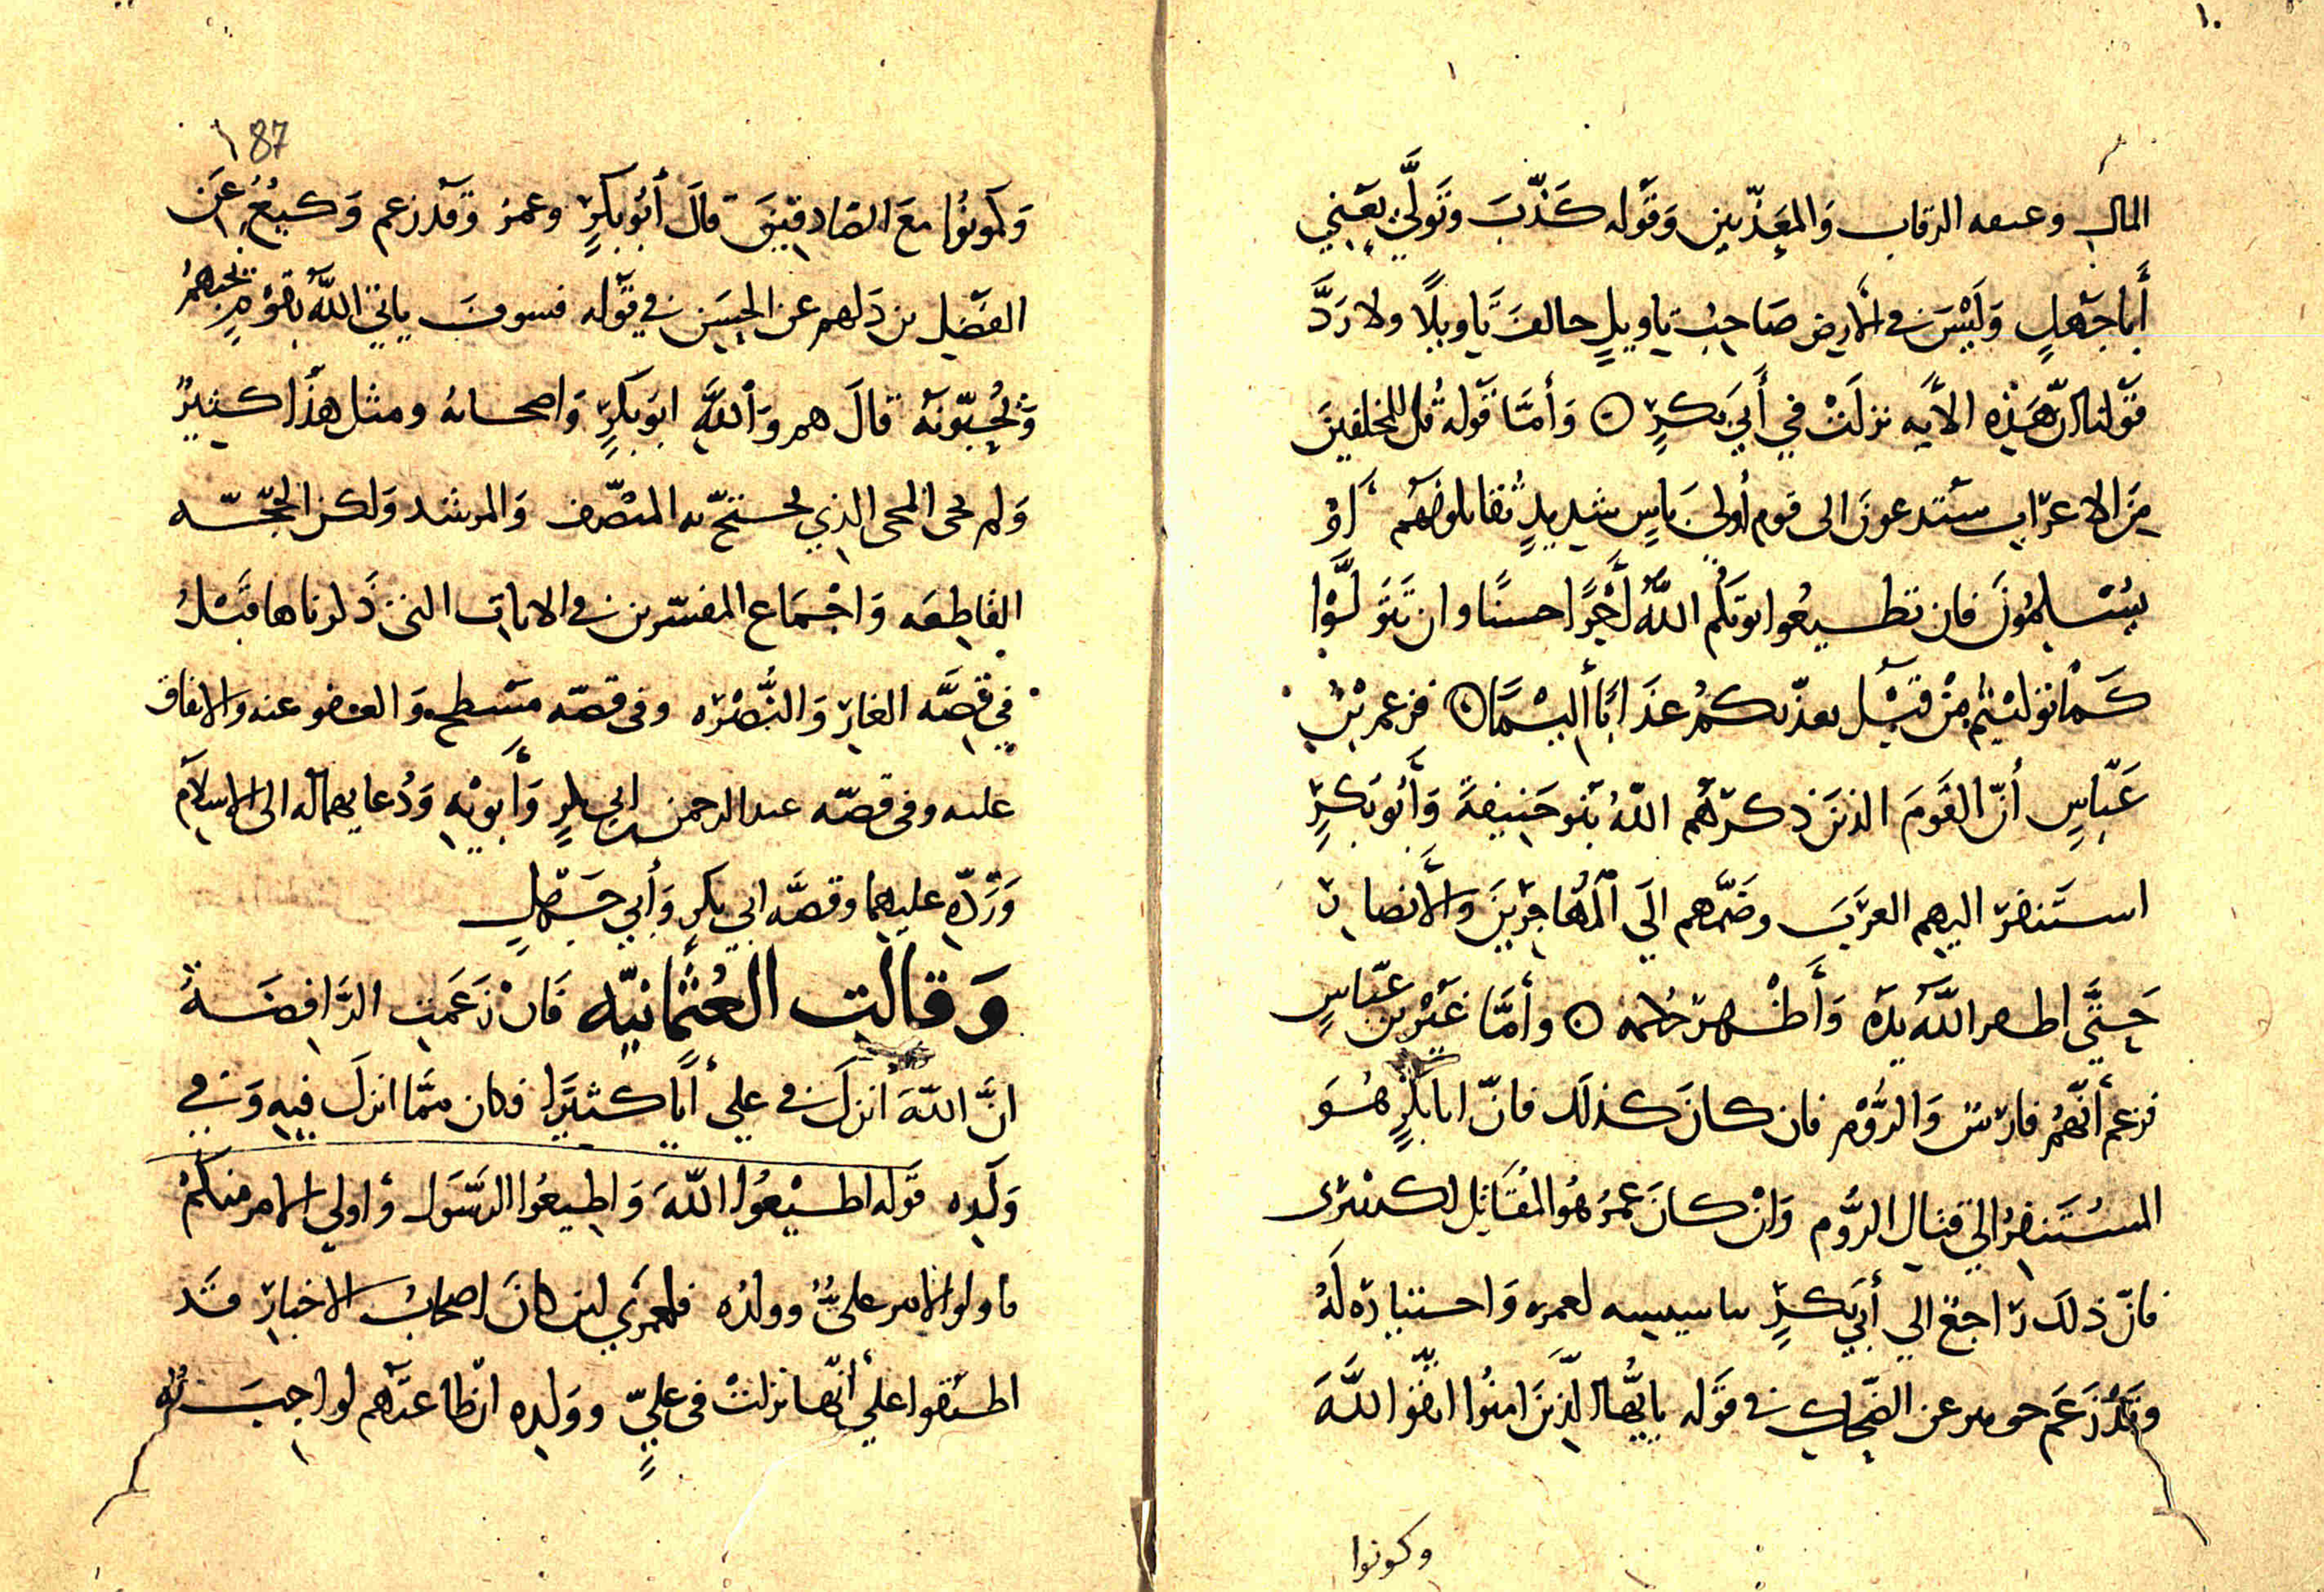 المال وعتقه الرقاب وَالمعَذّبين وَقَوله كَذّبَ وَتَولَّى يَعني
أَبا جَهلٍ وَلَيْسَ في الأرض صَاحِبُ تاويلٍ خالفَ تَاويلًا ولا رَدَّ
قَوْلنا انّ هَذِه الآيه نزلَتْ في أَبي بَكرٍ ۞ وَأمَّا قَوله قُل للمخلفينَ
مِنَ الاعرَاب ستدعونَ الى قوم أُولي بَاسٍ شديدٍ تُقاتلونهُم أَوْ
يُسْلِمُونَ فان تطيعُوا يوتكُم اللَّهُ أَجْرًا حسنًا وان تَتَوَلَّوْا
كَمْا تَولّيْتم مِنْ قَبْل يعذّبكُمْ عَذَابًا أَليْمًا ۞ فزعم بْنُ
عَبّاسٍ أنّ القَومَ الذينَ ذكرَهُم اللّهُ بَنُو حَنيفةَ وَأَبُو بَكرٍ
استَنفرَ اليهم العرَبَ وضَمّهم الَي الْمُهَاجِرينَ وَالأَنصارِ
حَتَّى اظهر اللَّهُ يدَهُ وَأَظْهرَ حُكمه ۞ وأَمَّا غَيْر بن عَبّاسٍ
فزعم أَنَّهُمْ فارسُ وَالرُّوْم فان كانَ كذلكَ فانّ ابا بَكْرٍ هُوَ
المسُتَنفِرُ الي قتال الرُّوم وَانْ كانَ عمَرُ هُوَ المُقَاتِل لكسْرى
فانّ ذلكَ رَاجعٌ الي أَبي بَكرٍ بتاسيسه لعمره وَاختياره لَهُ
وَقَدْ زَعَم جويبر عن الضحّاك في قَوله يا ايُّها الذينَ امنُوا اتّقوا اللَّهَ
وكونوا
87
وَكونُوا معَ الصّادقينَ قالَ أَبُو بَكرٍ وعمرُ وَقَدْ زعم وَكيعٌ عَن
الفَضل بن دَلهم عن الحسَن في قَوله فسوفَ ياتي اللَّهُ بقَوْمٍ يحبّهُمْ
وَيُحِبّونَهُ قالَ هم وَاللَّهِ ابو بَكرٍ وَاصحابهُ ومثل هذَا كثيرٌ
وَلم يجئ المجئ الذي يحتجّ به المنصّف وَالمرشد وَلكن الحجّه
القاطِعَه وَاجْمَاع المفسّرين في الايات التي ذَكرناها قَبْلُ
في قصَّه الغار وَالنُّصْرَه وفي قصّه مسْطح وَالعفو عنه والانفاق
عليه وفي قصّه عبد الرحمن بن ابي بكرٍ وَأَبويْهِ وَدُعايهما له الى الاسلام
وَرَدّه عليهِما وقصَّه ابي بكرٍ وَأبي جَهلٍ
وَقالت العُثْمانيّه فَانْ زَعَمت الرَّافِضَةُ
انَّ اللّهَ أنزلَ في علي أيًا كثيرًا فكان ممَّا انزلَ فيهِ وَفي
وَلَدِه قَوله اطيْعُوا اللَّهَ وَاطِيعُوا الرسُولَ وَاولي الامر منكُمْ
فاولو الامر علىٌّ وولدُه فلعمري لين كانَ اصحابُ الاخبار قَد
اطبقوا علي أَنّها نزلَتْ في عليٍّ ووَلدِه انّ طاعتَهم لواجبَه